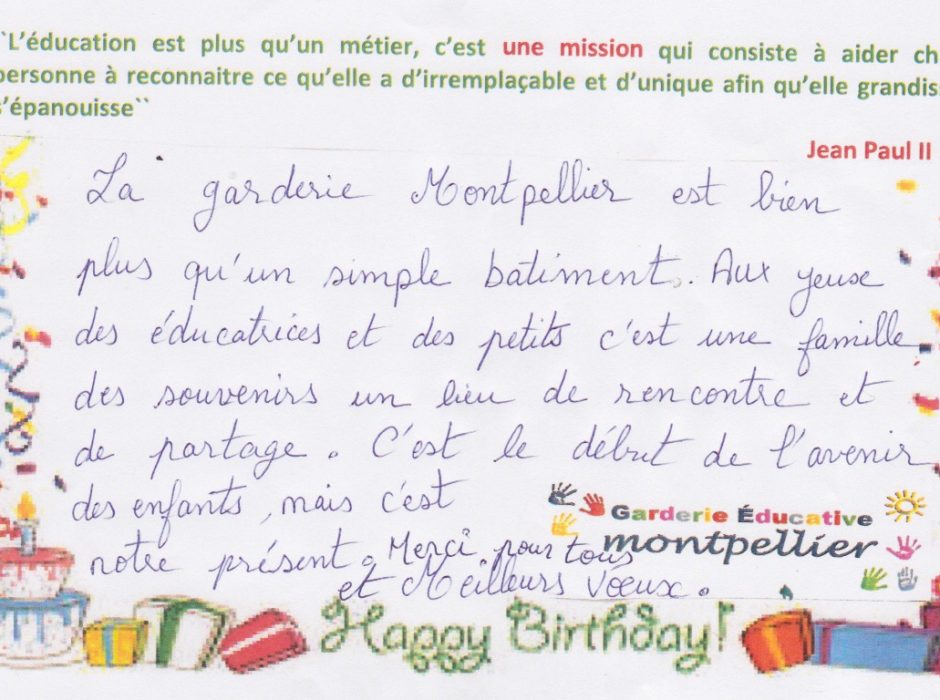 ``L'éducation est plus qu'un métier, c'est une mission qui consiste à aider ch
personne à reconnaitre ce qu'elle a d'irremplaçable et d'unique afin qu'elle grandis
s'épanouisse``
Jean Paul II
La garderie Montpellier est bien
plus qu'un simple batiment. Aux yeuse
des éducatrices et des petits c'est une famille
des souvenirs un lieu de rencontre et
de partage. C'est le début de l'avenir
des enfants, mais c'est
notre présent. Merci pour tous
et Meilleurs Vœux.
Garderie Éducative
montpellier
Happy Birthday!